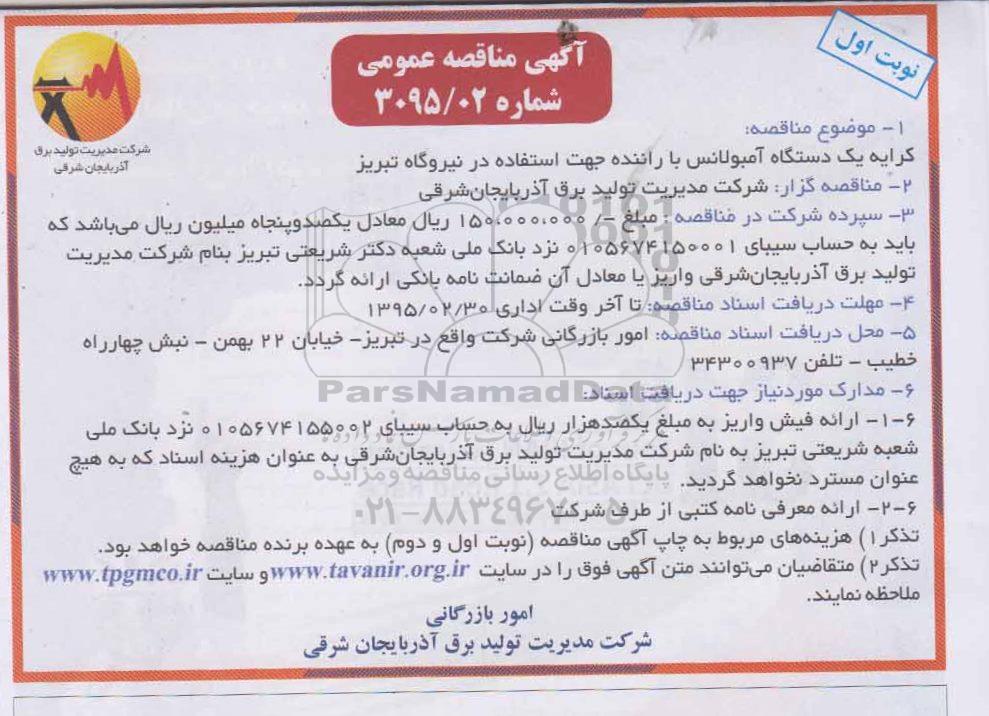 نوبت اول
آگهی مناقصه عمومی
شماره ۳۰۹۵/۰۲
شرکت مدیریت تولید برق
آذربایجان شرقی
۱- موضوع مناقصه:
کرایه یک دستگاه آمبولانس با راننده جهت استفاده در نیروگاه تبریز
۲- مناقصه گزار: شرکت مدیریت تولید برق آذربایجان‌شرقی
۳- سپرده شرکت در مناقصه: مبلغ -/ ۱۵۰،۰۰۰،۰۰۰ ریال معادل یکصدوپنجاه میلیون ریال می‌باشد که
باید به حساب سیبای ۰۱۰۵۶۷۴۱۵۰۰۰۱ نزد بانک ملی شعبه دکتر شریعتی تبریز بنام شرکت مدیریت
تولید برق آذربایجان‌شرقی واریز یا معادل آن ضمانت نامه بانکی ارائه گردد.
۴- مهلت دریافت اسناد مناقصه: تا آخر وقت اداری ۱۳۹۵/۰۲/۳۰
۵- محل دریافت اسناد مناقصه: امور بازرگانی شرکت واقع در تبریز- خیابان ۲۲ بهمن - نبش چهارراه
خطیب - تلفن ۳۴۳۰۰۹۳۷
ParsNamadData
۶- مدارک موردنیاز جهت دریافت اسناد:
۶-۱- ارائه فیش واریز به مبلغ یکصدهزار ریال به حساب سیبای ۰۱۰۵۶۷۴۱۵۵۰۰۲ نزد بانک ملی
شعبه شریعتی تبریز به نام شرکت مدیریت تولید برق آذربایجان‌شرقی به عنوان هزینه اسناد که به هیچ
پایگاه اطلاع رسانی مناقصه و مزایده
عنوان مسترد نخواهد گردید.
۶-۲- ارائه معرفی نامه کتبی از طرف شرکت
۰۲۱-۸۸۳۴۹۶۷۰-۵
تذکر۱) هزینه‌های مربوط به چاپ آگهی مناقصه (نوبت اول و دوم) به عهده برنده مناقصه خواهد بود.
تذکر۲) متقاضیان می‌توانند متن آگهی فوق را در سایت www.tavanir.org.ir و سایت www.tpgmco.ir
ملاحظه نمایند.
امور بازرگانی
شرکت مدیریت تولید برق آذربایجان شرقی